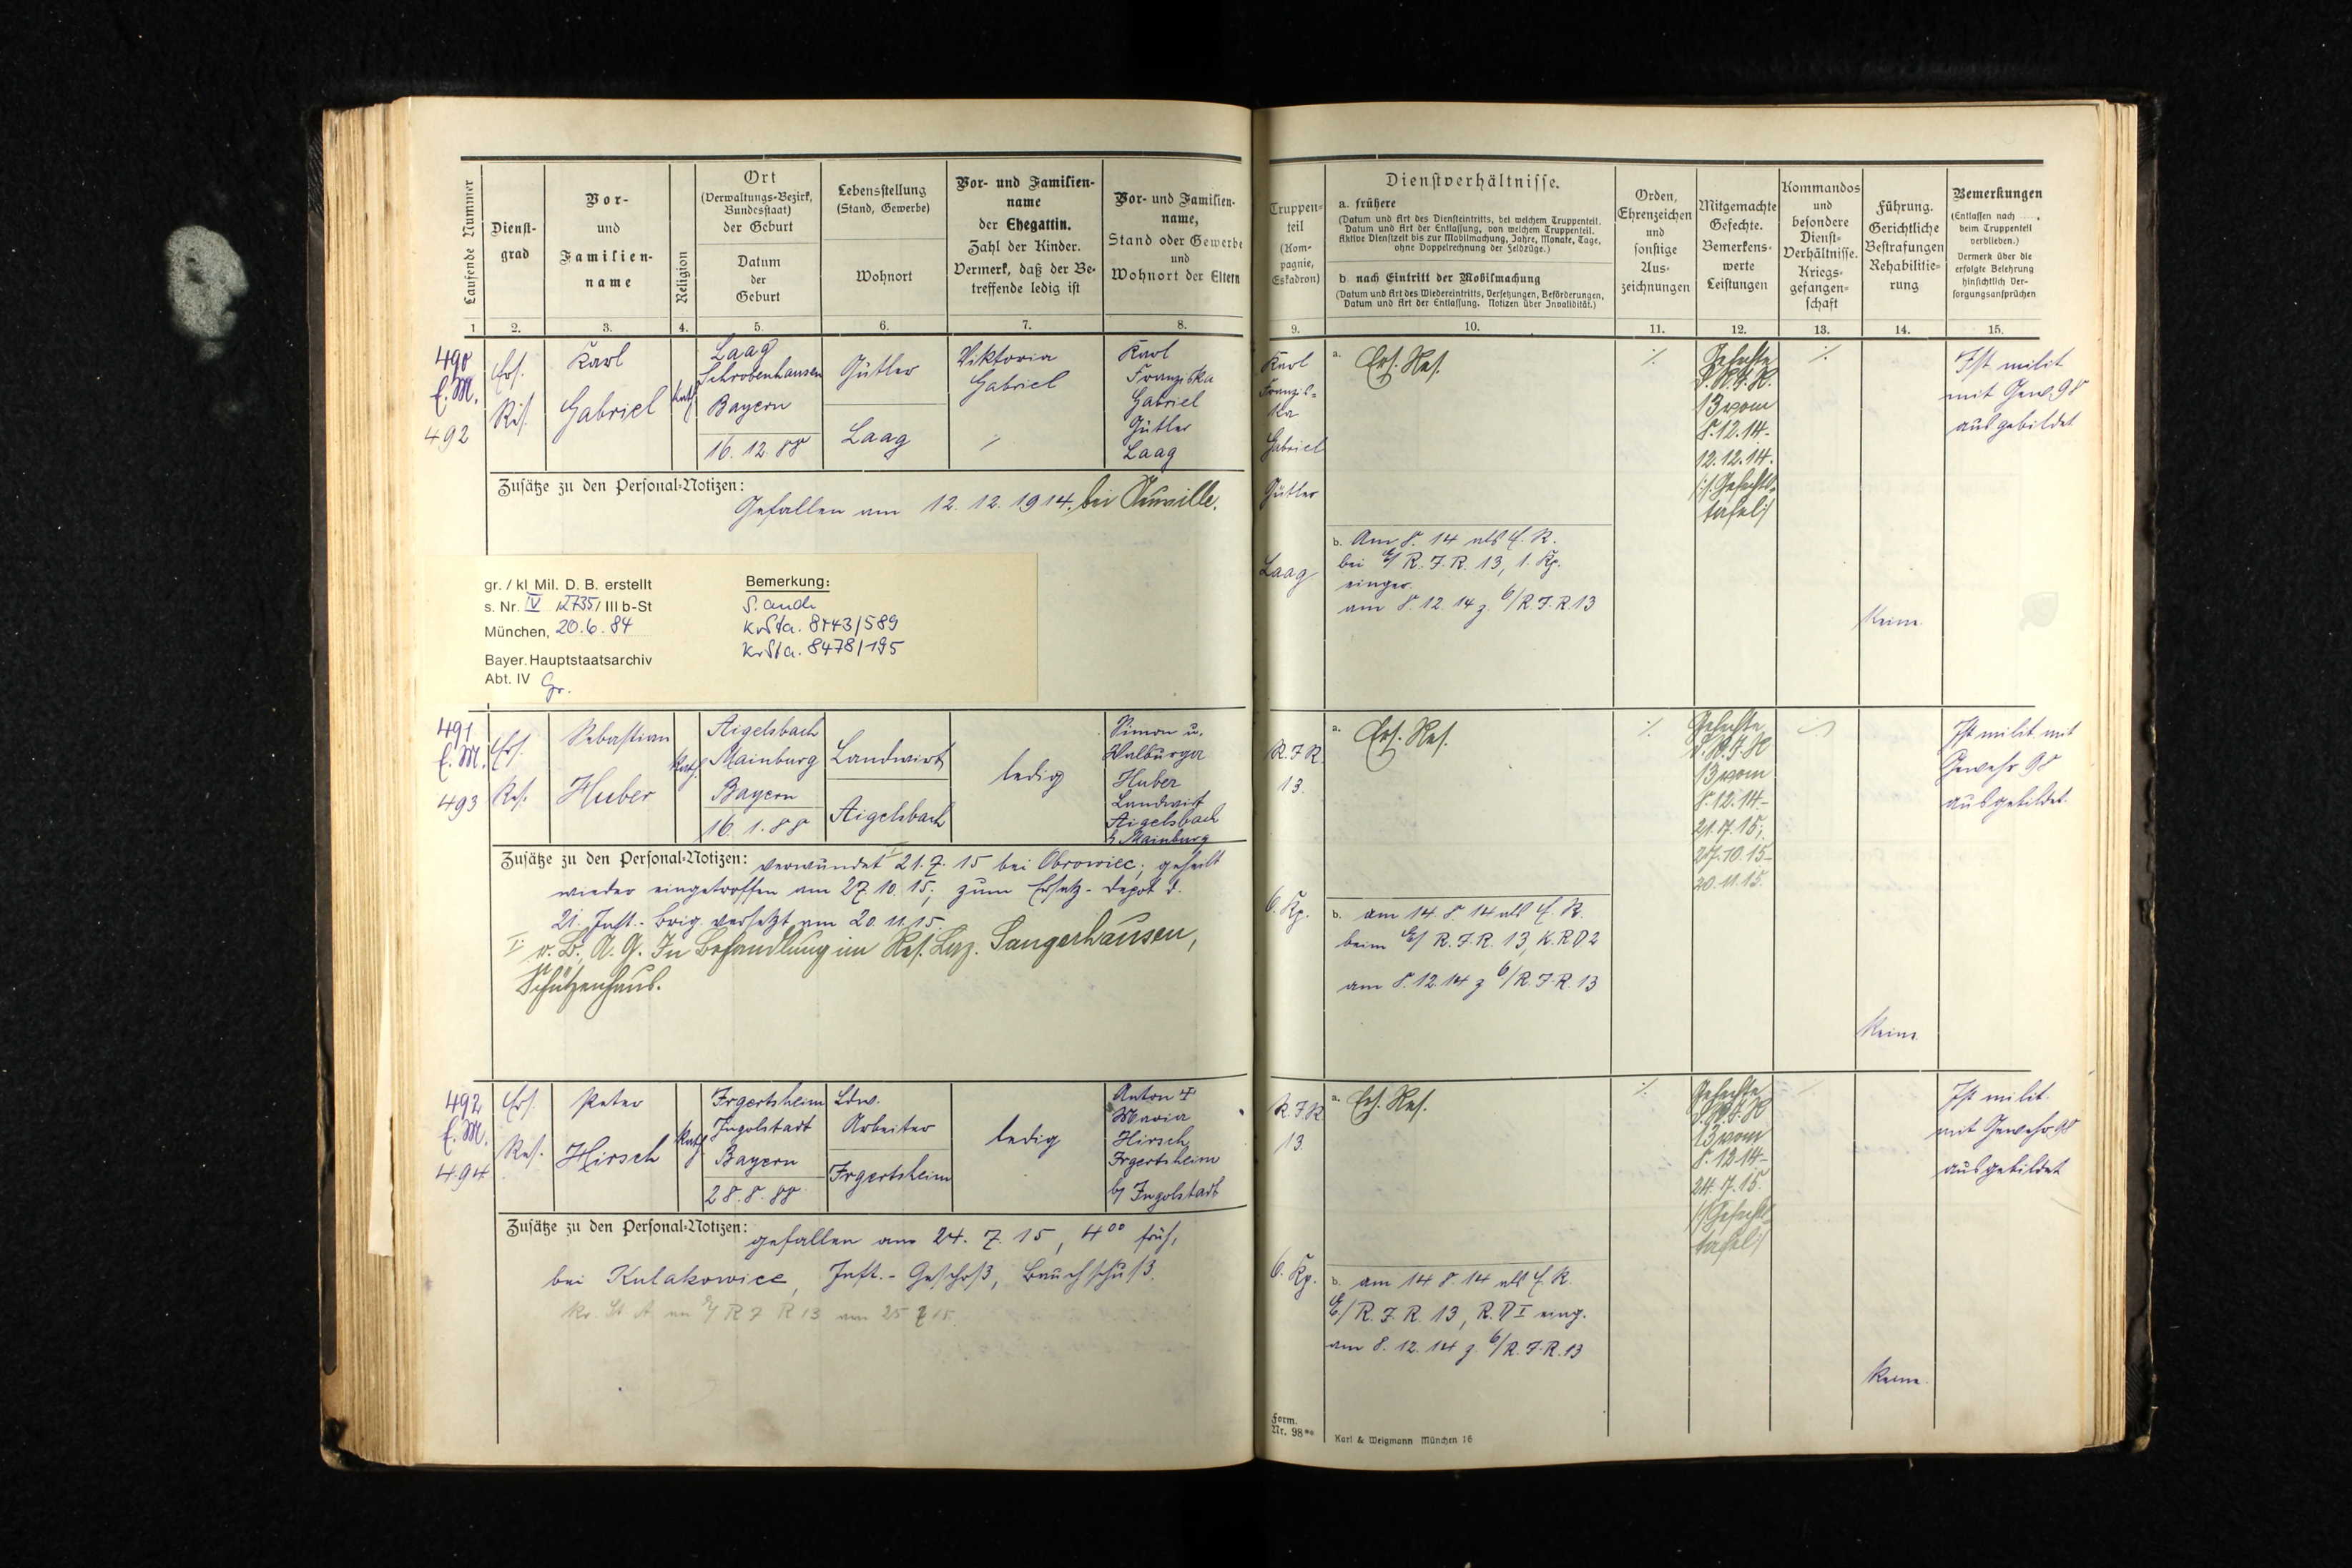 Laufende Nummer
Dienst-
grad
Vor-
und
Familien-
name
Religion
Ort
(Verwaltungs-Bezirk,
Bundesstaat)
der Geburt
Datum
der
Geburt
Lebensstellung
(Stand, Gewerbe)
Wohnort
Vor- und Familien-
name
der Ehegattin.
Zahl der Kinder.
Vermerk, daß der Be-
treffende ledig ist
Vor- und Familien-
name,
Stand oder Gewerbe
und
Wohnort der Eltern
1
2.
3.
4.
5.
6.
7.
8.
490
E.M.
492
Ers.
Res.
Karl
Gabriel
Kath
Laag
Schrobenhausen
Bayern
16. 12. 88
Gütler
Laag
Viktoria
Gabriel
Karl
Franziska
Gabriel
Gütler
Laag
Zusätze zu den Personal-Notizen:
Gefallen am 12. 12. 1914. bei
gr. / kl Mil. D. B. erstellt
s. Nr. IV 12735 / III b-St
München, 20.6.84
Bayer. Hauptstaatsarchiv
Abt. IV Gr.
Bemerkung:
S. auch
KrSta. 8143/589
KrSta. 8478/195
491
E.M.
493
Ers.
Res.
Sebastian
Huber
Kath
Aigelsbach
Mainburg
Bayern
16. 1. 88
Landwirt
Aigelsbach
ledig
Simon u.
Walburga
Huber
Landwirt
Aigelsbach
b Mainburg
Zusätze zu den Personal-Notizen: verwundet I 21. 7. 15 bei Obrowiec; geheilt
wieder eingetroffen am 27 10 15; zum Ersatz-Depot d.
21. Inft.-Brig. versetzt am 20. 11. 15.
I. A. G. In Behandlung im Res. Laz. Sangerhausen,
Schützenhaus.
492
E.M.
494
Ers.
Res.
Peter
Hirsch
Kath
Irgertsheim
Ingolstadt
Bayern
28. 8. 88
Ldw.
Arbeiter
Irgertsheim
ledig
Anton
Maria
Hirsch
Irgertsheim
b/ Ingolstadt
Zusätze zu den Personal-Notizen: gefallen am 24. 7. 15, 4⁰⁰ früh,
bei Kulakowice, Inft.-Geschoß, Bauchschuß.
Kr. St A an R I R 13 am 25 7 15.
Truppen-
teil
(Kom-
pagnie,
Eskadron)
Dienstverhältnisse.
a. frühere
(Datum und Art des Diensteintritts, bei welchem Truppenteil.
Datum und Art der Entlassung, von welchem Truppenteil.
Aktive Dienstzeit bis zur Mobilmachung, Jahre, Monate, Tage,
ohne Doppelrechnung der Feldzüge.)
b. nach Eintritt der Mobilmachung
(Datum und Art des Wiedereintritts, Versetzungen, Beförderungen,
Datum und Art der Entlassung. Notizen über Invalidität.)
Orden,
Ehrenzeichen
und
sonstige
Aus-
zeichnungen
Mitgemachte
Gefechte.
Bemerkens-
werte
Leistungen
Kommandos
und
besondere
Dienst-
Verhältnisse.
Kriegs-
gefangen-
schaft
Führung.
Gerichtliche
Bestrafungen
Rehabilitie-
rung
Bemerkungen
(Entlassen nach
beim Truppenteil
verblieben.)
Vermerk über die
erfolgte Belehrung
hinsichtlich Ver-
sorgungsansprüchen
9.
10.
11.
12.
13.
14.
15.
Karl
Franzis-
ka
Gabriel
Gütler
Laag
a. Ers. Res.
b. Am 8. 14 als E. R.
bei E/ R. I. R. 13, 1. Kp.
einger.
am 8. 12. 14 z. 6/R. I. R. 13
Gefechte
d. R. I. R.
13 vom
8. 12. 14-
12. 12. 14.
/:s. Gefechts-
tafel:/
Keine
Ist milit
mit Gew. 98
ausgebildet
R. I R.
13.
6. Kp.
a. Ers. Res.
b. am 14. 8. 14 als E. R.
beim E/ R. I. R. 13, K. R D 2
am 8. 12. 14 z 6/R. I. R. 13
Gefechte
d. R. I R
13 vom
8. 12. 14-
21. 7. 15;
27. 10. 15-
20. 11. 15.
Keine
Ist milit mit
Gewehr 98
ausgebildet.
R. I R
13
6. Kp.
a. Ers. Res.
b. am 14 8. 14 als E. R.
E./ R. I. R. 13, R. D I eing.
am 8. 12. 14 z. 6/R. I. R. 13
Gefechte
d. R. I R
13 vom
8. 12 14-
24. 7. 15.
/:s. Gefechts-
tafel:/
Keine
Ist milit.
mit Gewehr 98
ausgebildet
Form.
Nr. 98**
Karl & Weigmann München 16